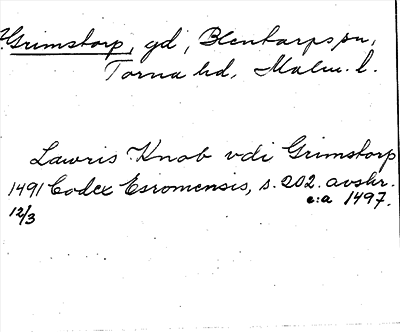 Grimstorp, gd, Blentarps sn,
Torna hd, Malm. l.
Lawris Knob vdi Grimstorp
1491 Codex Esromensis, s. 202. avskr.
12/3 c:a 1497.